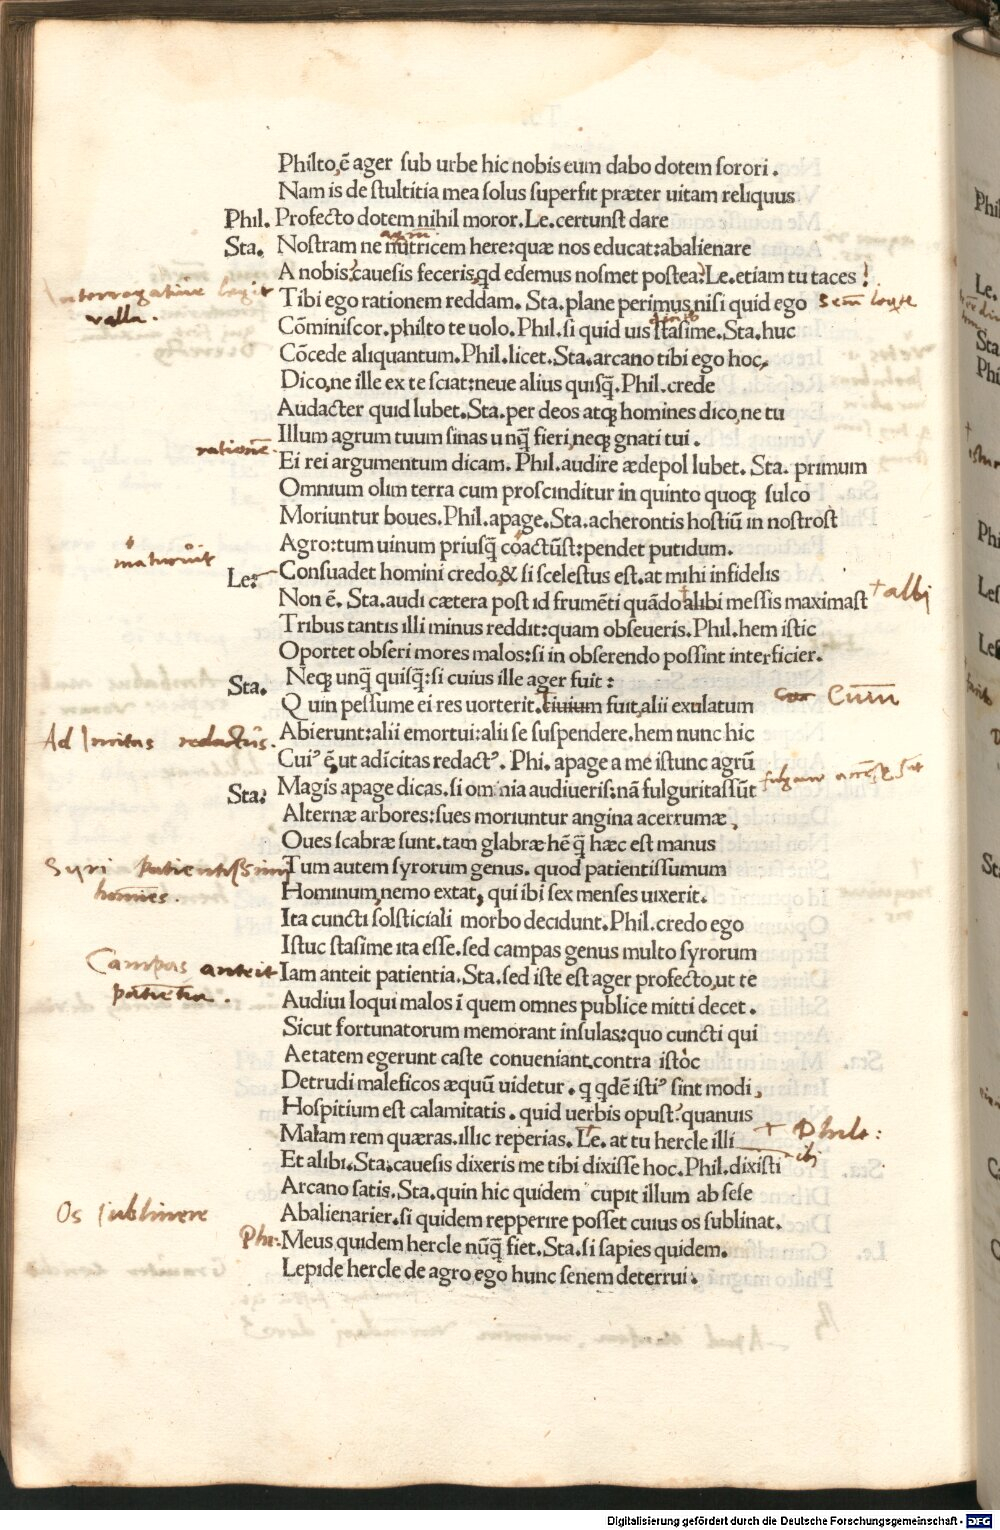 Philto,ē ager sub urbe hic nobis eum dabo dotem sorori.
Nam is de stultitia mea solus superfit præter uitam reliquus
Phil. Profecto dotem nihil moror. Le. certunst dare
agrū.
Sta. Nostram ne nutricem here: quæ nos educat: abalienare
A nobis? cauesis feceris, qd edemus nosmet postea? Le. etiam tu taces!
Interrogatiue legit
valla.
Tibi ego rationem reddam. Sta. plane perimus nisi quid ego
Cōminiscor. philto te uolo. Phil. si quid uis stasime. Sta. huc
Cōcede aliquantum. Phil. licet. Sta. arcano tibi ego hoc,
Dico, ne ille ex te sciat: neue alius quisq̄. Phil. crede
Audacter quid lubet. Sta. per deos atqꝫ homines dico, ne tu
Illum agrum tuum sinas unq̄ fieri, neqꝫ gnati tui.
rationē.
Ei rei argumentum dicam. Phil. audire ædepol lubet. Sta. primum
Omnium olim terra cum proscinditur in quinto quoqꝫ sulco
Moriuntur boues. Phil. apage. Sta. acherontis hostiū in nostrost
Agro: tum uinum priusq̄ coactūst: pendet putidum.
maturuit
Le: Consuadet homini credo, & si scelestus est. at mihi infidelis
Non ē. Sta. audi cætera post id frumēti quādo alibi messis maximast + albi
Tribus tantis illi minus reddit: quam obseueris. Phil. hem istic
Oportet obseri mores malos: si in obserendo possint interficier.
Sta. Neqꝫ unq̄ quisq̄: si cuius ille ager fuit:
Quin pessume ei res uorterit. ciuium fuit, alii exulatum Cum
Abierunt: alii emortui: alii se suspendere. hem nunc hic
Ad Incitas redactus.
Cuiꝰ ē, ut adicitas redactꝰ. Phi. apage a me istunc agrū
Sta: Magis apage dicas. si ominia audiueris: nā fulguritassūt
Alternæ arbores: sues moriuntur angina acerrumæ,
Oues scabræ sunt. tam glabræ hē q̄ hæc est manus
Syri patientissimi
homines.
Tum autem syrorum genus. quod patientissumum
Hominum, nemo extat, qui ibi sex menses uixerit.
Ita cuncti solsticiali morbo decidunt. Phil. credo ego
Istuc stasime ita esse. sed campas genus multo syrorum
Campas anteit
patientia.
Iam anteit patientia. Sta. sed iste est ager profecto, ut te
Audiui loqui malos ī quem omnes publice mitti decet.
Sicut fortunatorum memorant insulas: quo cuncti qui
Aetatem egerunt caste conueniant. contra istòc
Detrudi maleficos æquū uidetur. q qdē istiꝰ sint modi,
Hospitium est calamitatis. quid uerbis opust? quanuis
Malam rem quæras. illic reperias. Le. at tu hercle illi + Phile:
ibi
Et alibi. Sta. cauesis dixeris me tibi dixisse hoc. Phil. dixisti
Arcano satis. Sta. quin hic quidem cupit illum ab sese
Os sublinere
Abalienarier. si quidem repperire posset cuius os sublinat.
Phi: Meus quidem hercle nūq̄ fiet. Sta. si sapies quidem.
Lepide hercle de agro ego hunc senem deterrui.
Phil
Le.
Sta
Phi
Digitalisierung gefördert durch die Deutsche Forschungsgemeinschaft - DFG